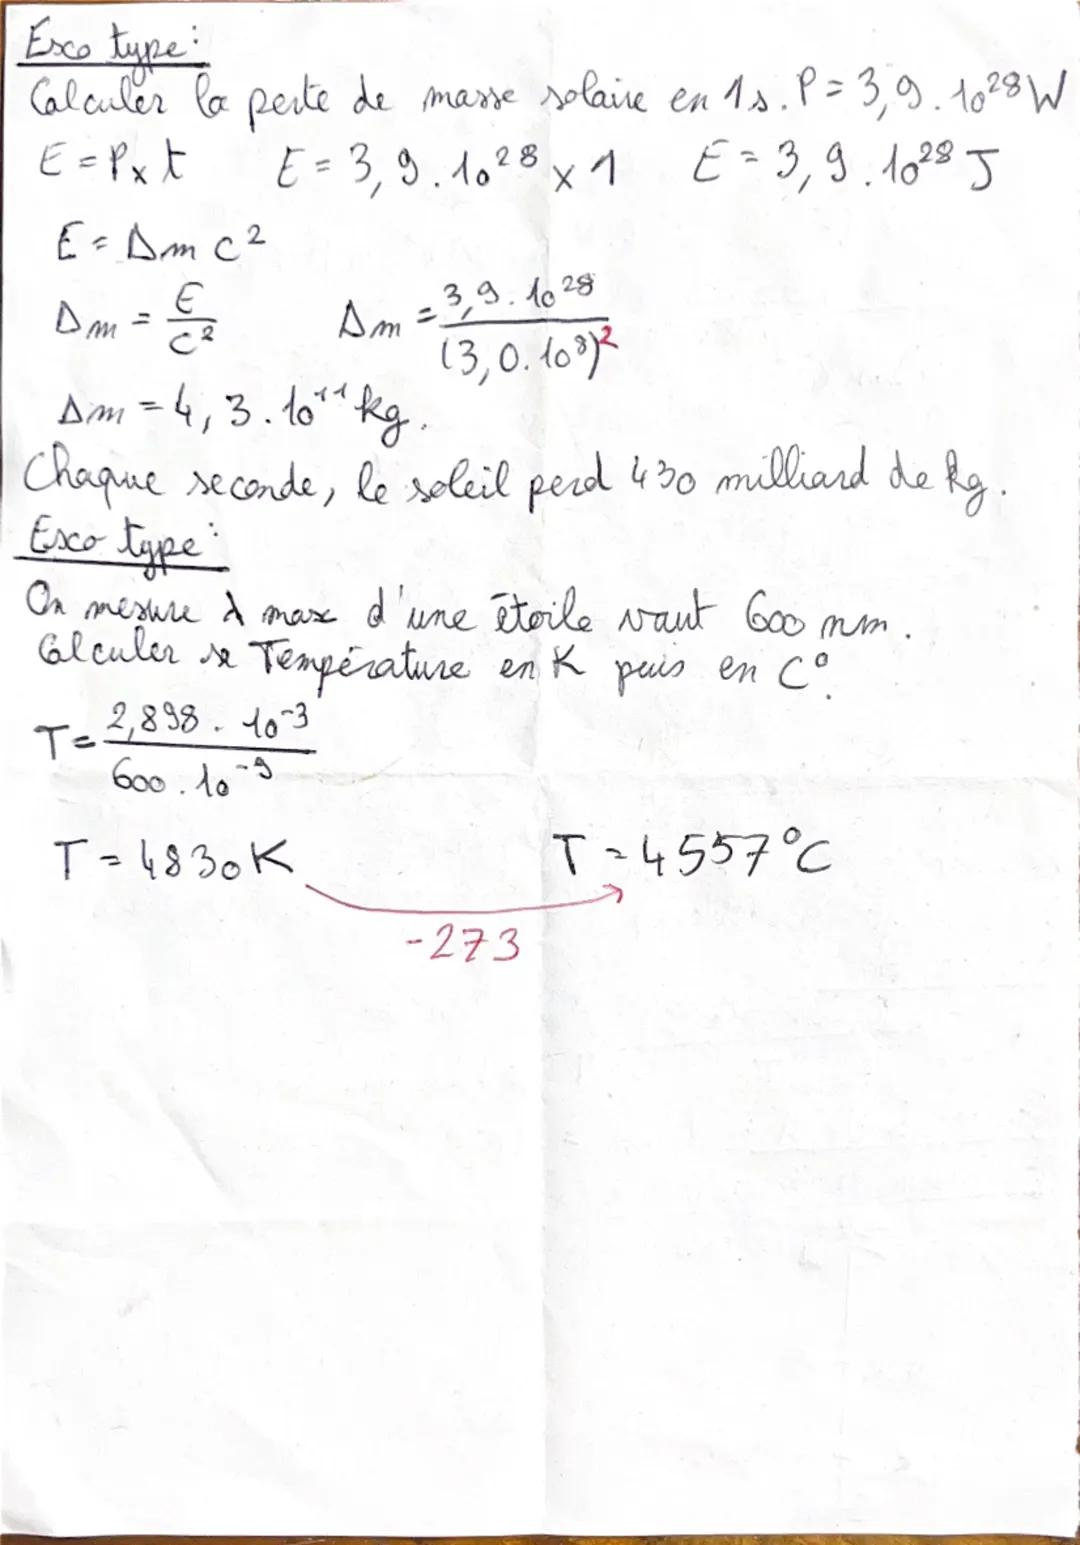 Exo type:
Calculer la perte de masse solaire en 1s. P = 3,9.10²⁸W
E = P x t E = 3,9.10²⁸ x 1 E = 3,9.10²⁸ J
E = Δm c²
Δm = E/c² Δm = 3,9.10²⁸/(3,0.10⁸)²
Δm = 4,3.10¹¹ kg.
Chaque seconde, le soleil perd 430 milliard de kg.
Exo type:
On mesure λ max d'une étoile vaut 600 nm.
Calculer sa Température en K puis en C°
T = 2,898.10⁻³/600.10⁻⁹
T = 4830K T = 4557°C
-273